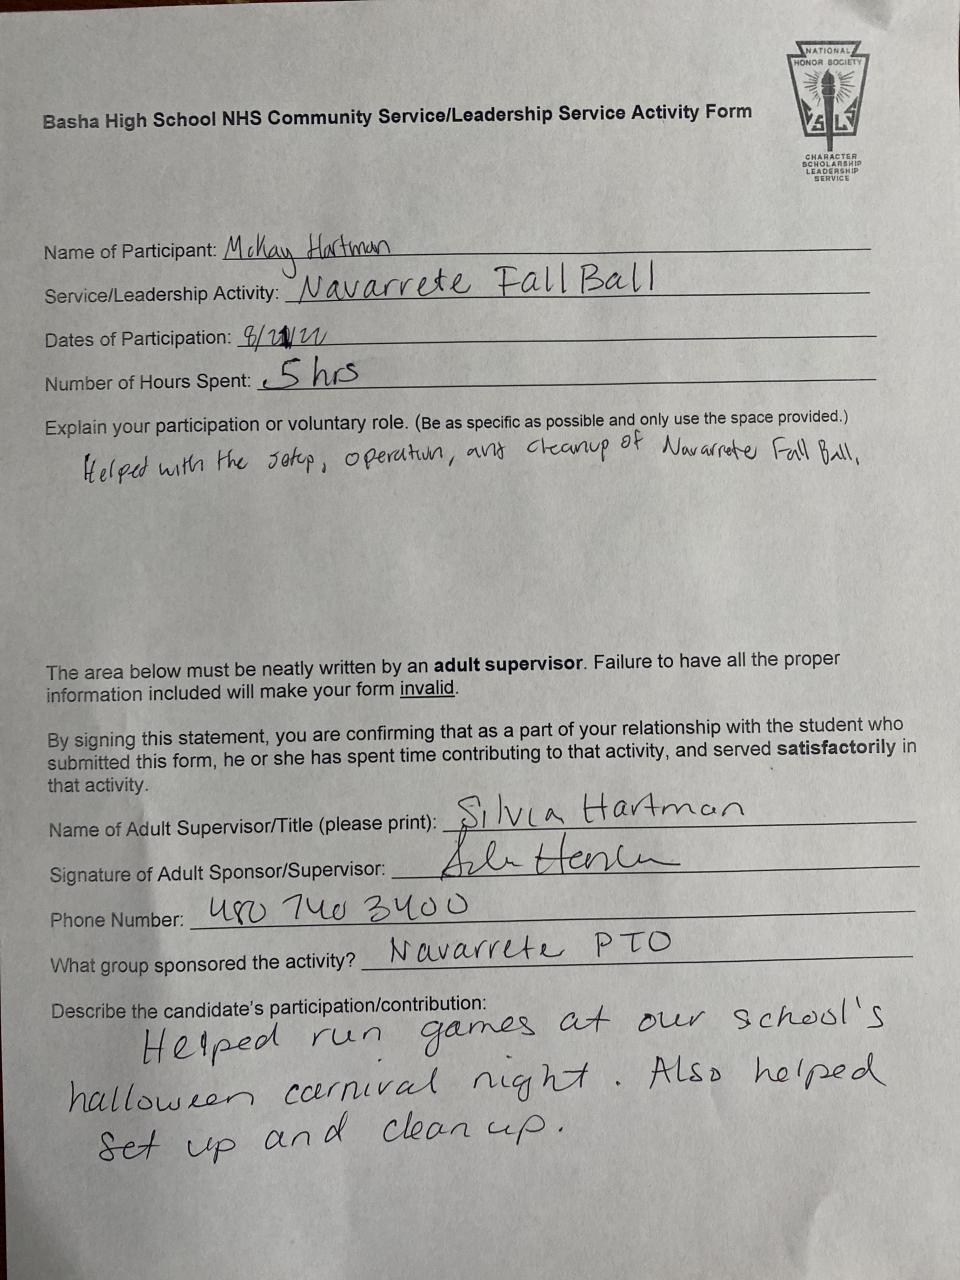 NATIONAL
HONOR SOCIETY
S L
CHARACTER
SCHOLARSHIP
LEADERSHIP
SERVICE
Basha High School NHS Community Service/Leadership Service Activity Form
Name of Participant: McKay Hartman
Service/Leadership Activity: Navarrete Fall Ball
Dates of Participation: 8/21/22
Number of Hours Spent: 5 hrs
Explain your participation or voluntary role. (Be as specific as possible and only use the space provided.)
Helped with the setup, operation, and cleanup of Navarrete Fall Ball.
The area below must be neatly written by an adult supervisor. Failure to have all the proper
information included will make your form invalid.
By signing this statement, you are confirming that as a part of your relationship with the student who
submitted this form, he or she has spent time contributing to that activity, and served satisfactorily in
that activity.
Name of Adult Supervisor/Title (please print): Silvia Hartman
Signature of Adult Sponsor/Supervisor:
Phone Number: 480 740 3400
What group sponsored the activity? Navarrete PTO
Describe the candidate's participation/contribution:
Helped run games at our school's
halloween carnival night. Also helped
set up and clean up.